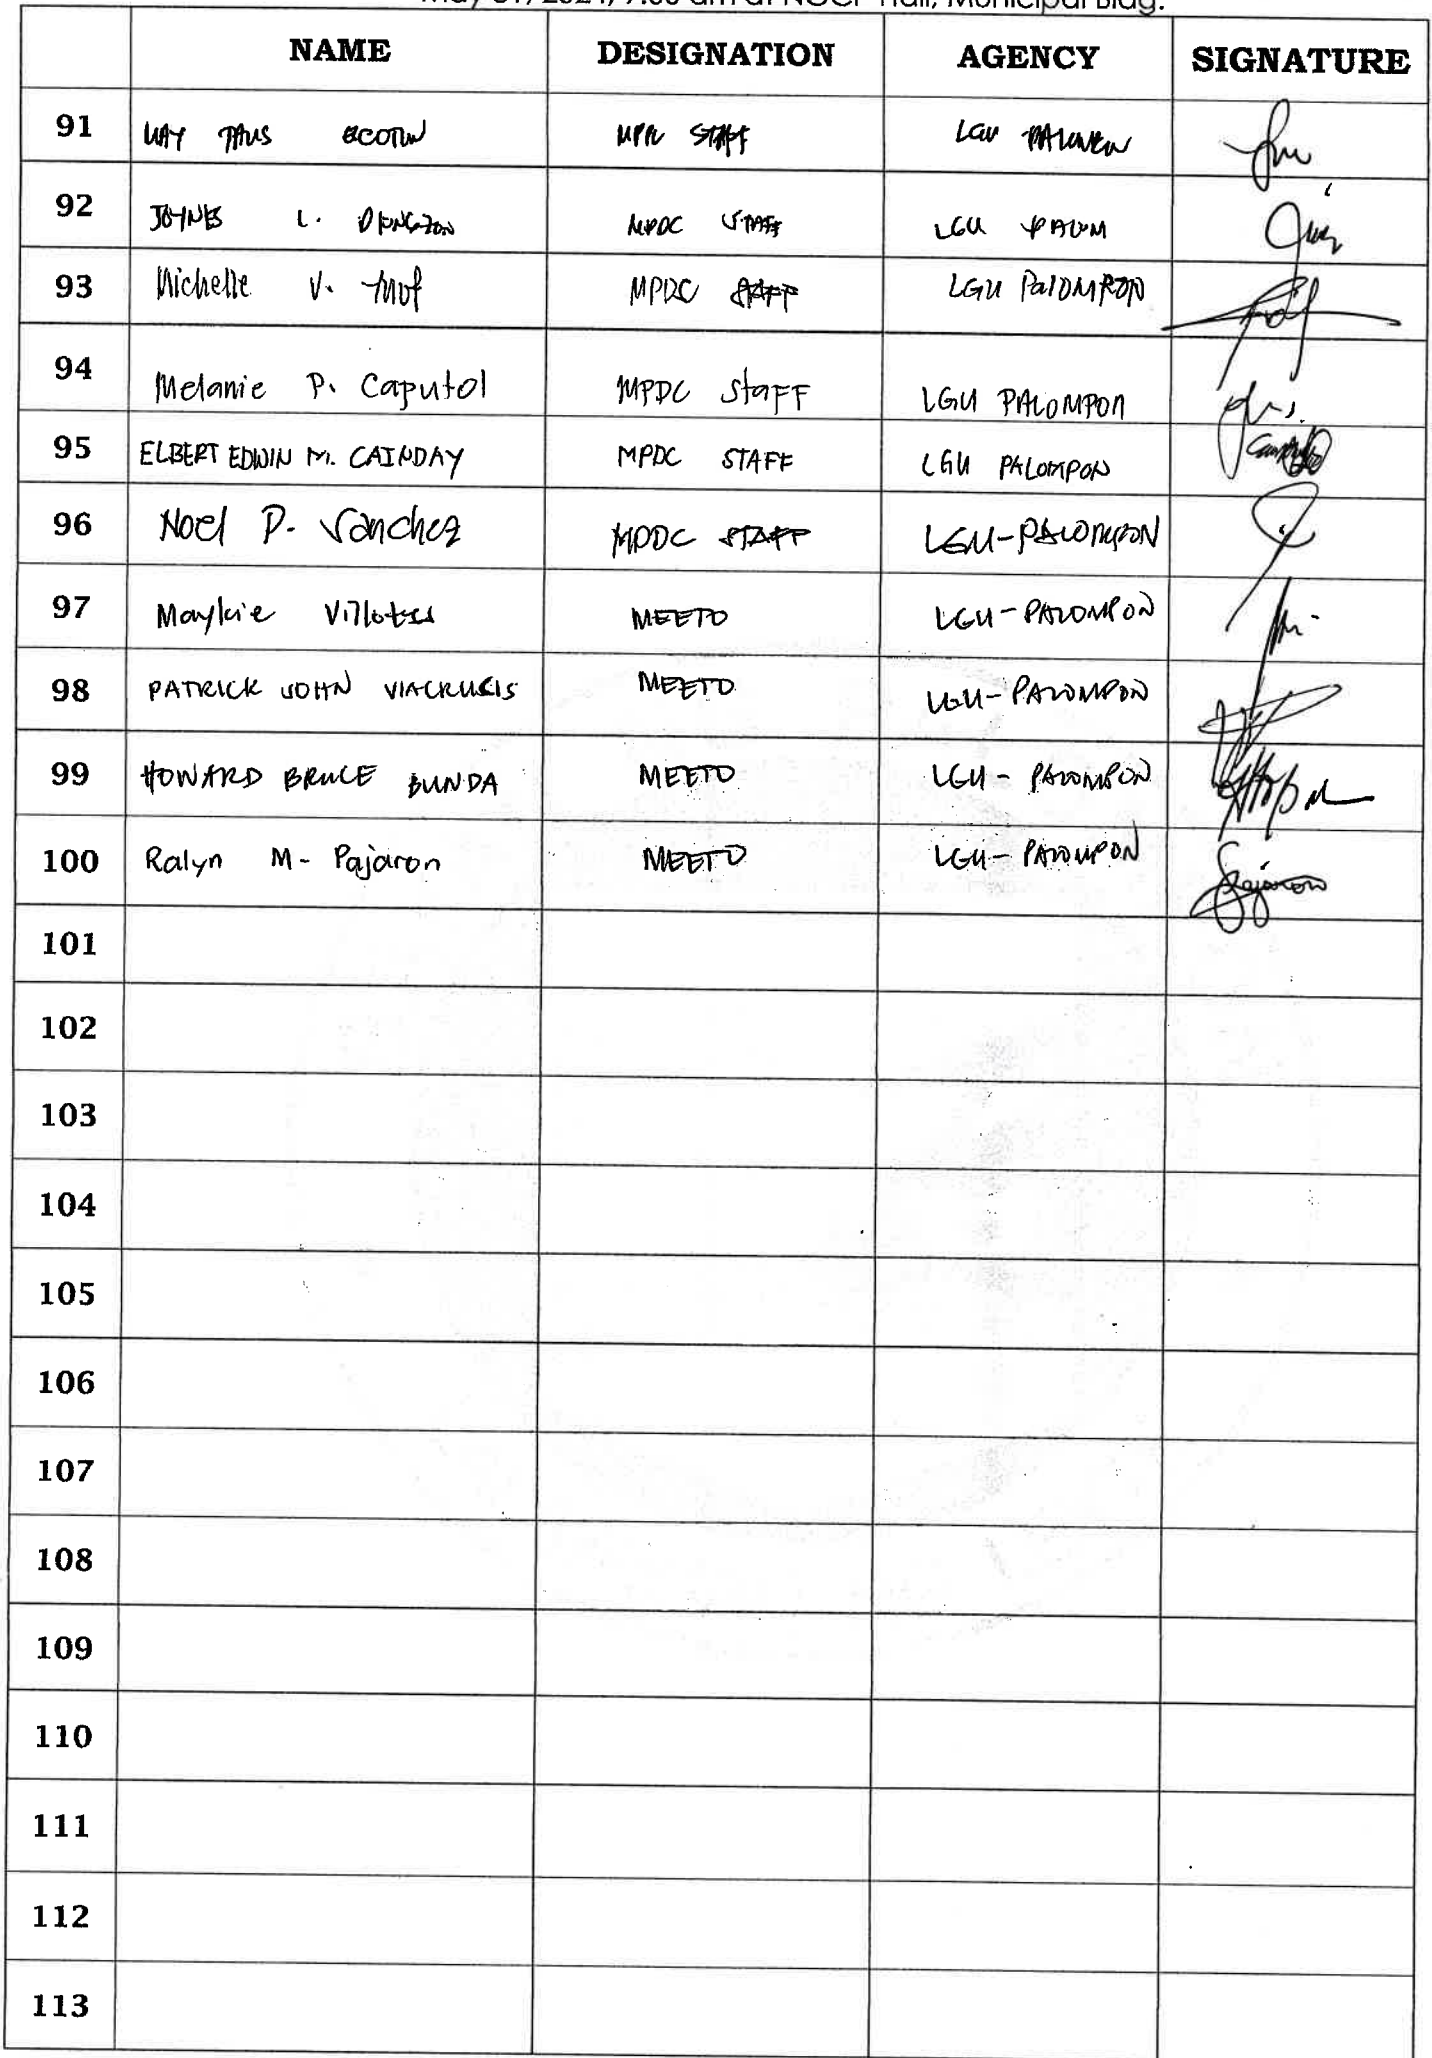 at NCCP Hall, Municipal Bldg.
NAME DESIGNATION AGENCY SIGNATURE
91 STAFF LGU
92 L. MPDC STAFF LGU PALOM
93 Michelle V. MPDC STAFF LGU PalOMPON
94 Melanie P. Caputol MPDC staFF LGU PALOMPON
95 ELBERT EDWIN M. CAINDAY MPDC STAFF LGU PALOMPON
96 Noel P. Sanchez MPDC STAFF LGU-PALOMPON
97 Maykie MEETO LGU-PALOMPON
98 PATRICK JOHN VIACRUCIS MEETO LGU-PALOMPON
99 HOWARD BRUCE BUNDA MEETO LGU-PALOMPON
100 Ralyn M- Pajaron MEETO LGU-PALOMPON Pajaron
101
102
103
104
105
106
107
108
109
110
111
112
113